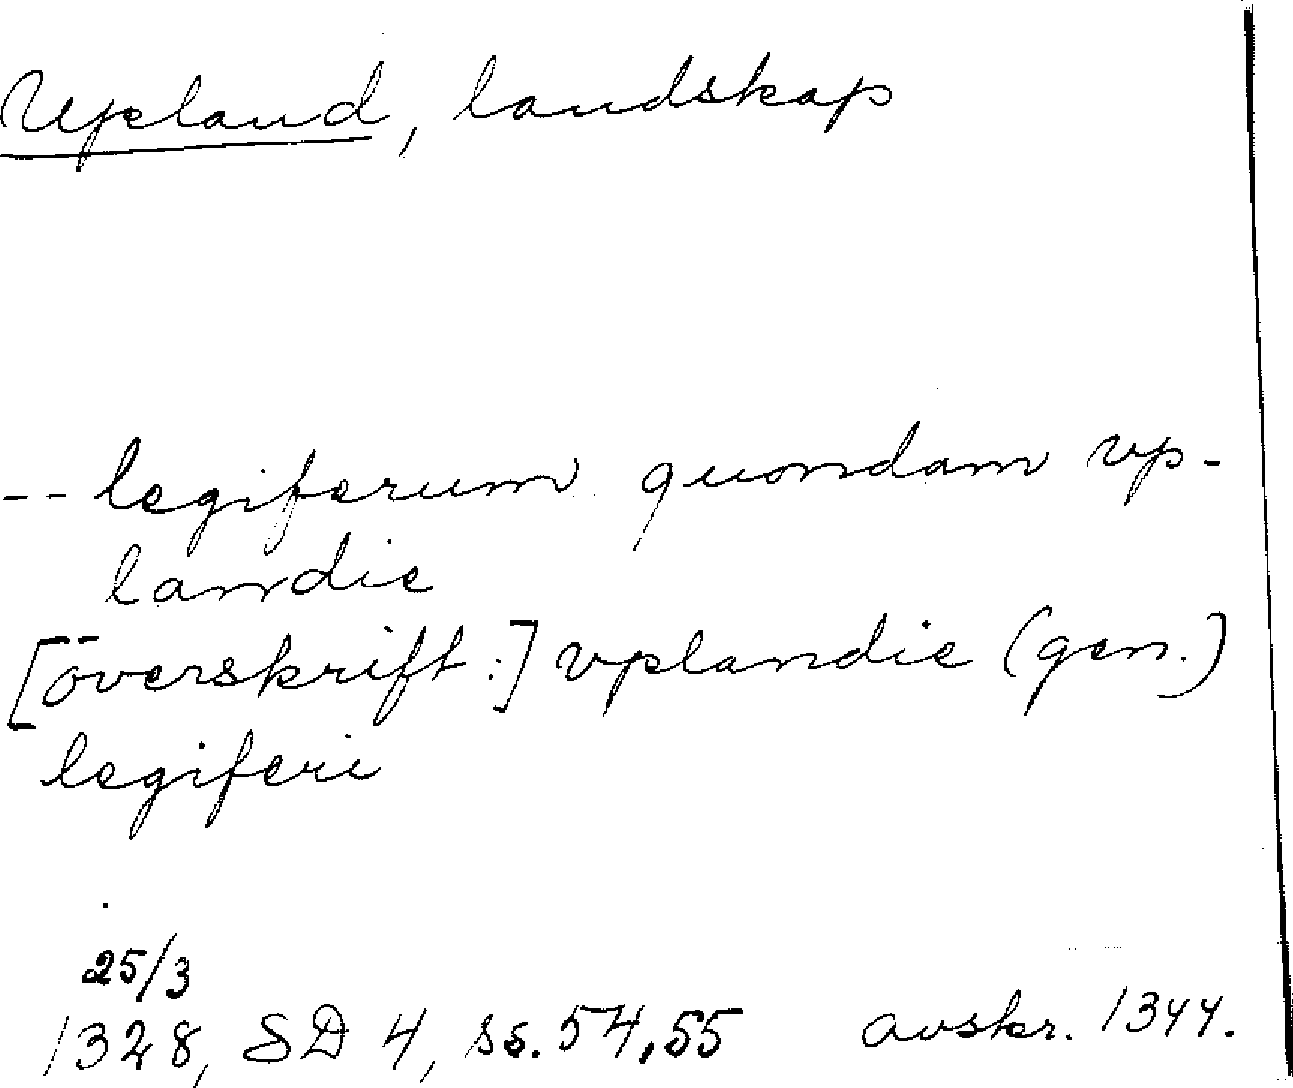 Uppland, landskap
-- legiferum quondam vp-
landie
[överskrift:] vplandie (gen.)
legiferi
25/3
1328, SD 4, ss. 54, 55 avskr. 1344.